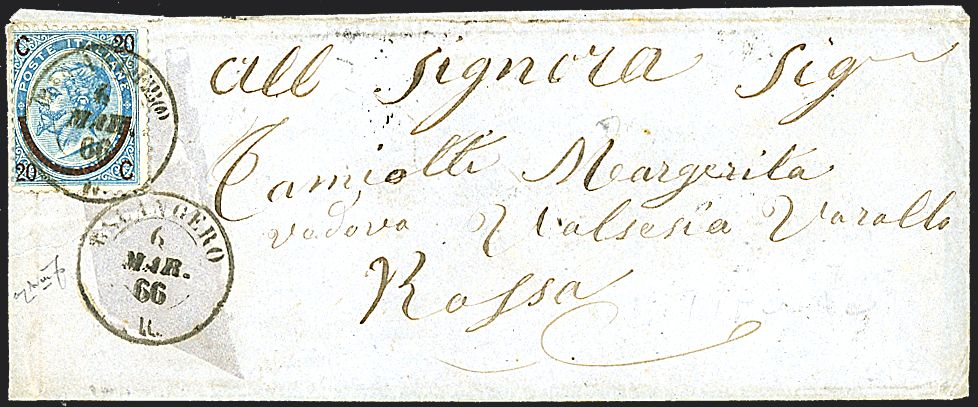 C 20
POSTE ITALIANE
20 C
6
MAR
66
R.
ESCANGERO
6
MAR.
66
R.
all signora sig
Tamiotti Margerita
vedova Valsesia Varallo
Rossa